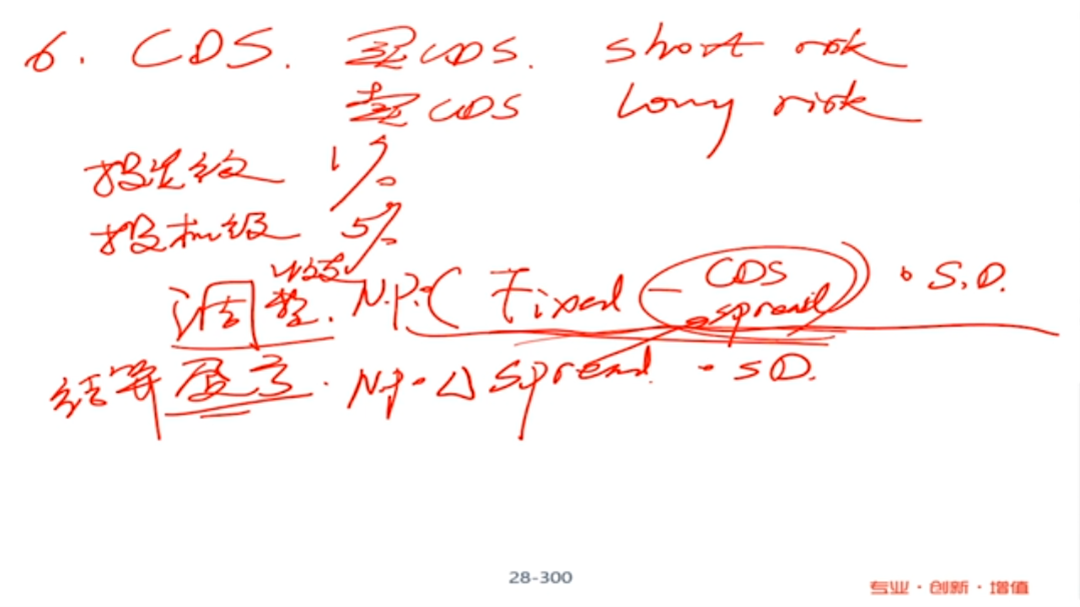 6. CDS. 买CDS. short risk
卖CDS long risk
投资级 1%
投机级 5%
调整. N.P.( Fixed - CDS spread) · S.D.
结算盈亏. N.P. · △ Spread. · S D.
28-300
专业 · 创新 · 增值